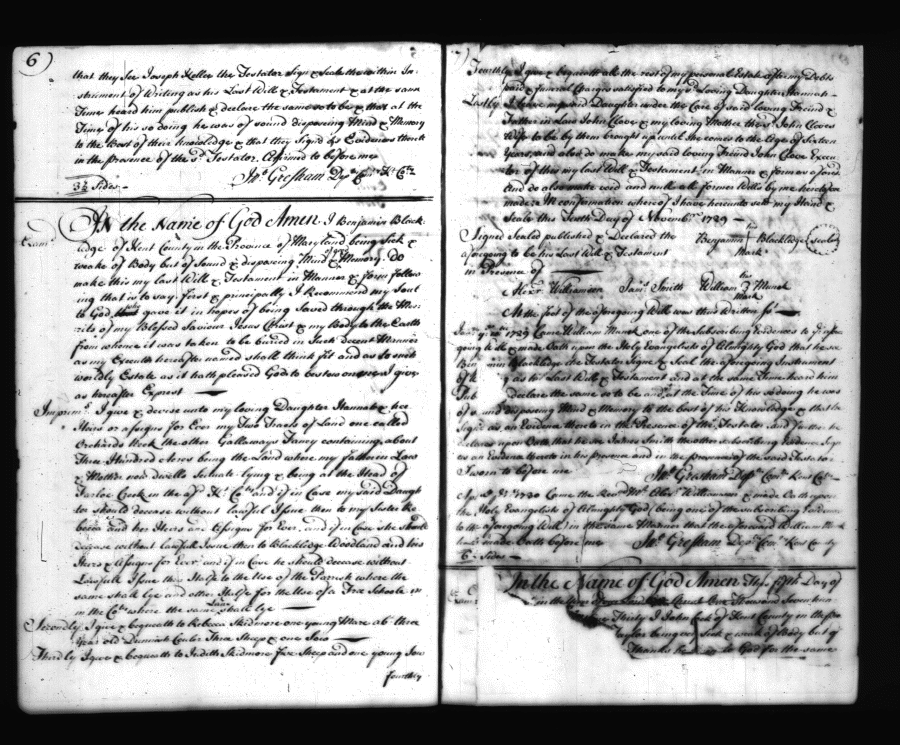 6
that they See Joseph Keller the Testator Sign & Seal the within In-
strument of Writing as his Last Will & Testament & at the same
Time heard him publish & declare the same so to be & that at the
Time of his so doing he was of sound disposing Mind & Memory
to the best of their knowledge & that they Signd as Evidences thereto
in the presence of the sd. Testator. Affirmed to before me
3½ Sides - Jno. Gresham Depty Comry Kt. Cty
In the Name of God Amen. I Benjamin Black
Exam'd
ledge of Kent County in the Province of Maryland being Sick &
weake of Body but of Sound & disposing Mind & Memory. Do
make this my last Will & Testament in Manner & form follow
ing that is to say. first & principally I Recommend my Soul
to God, who gave it in hopes of being Saved through the Mer
rits of my Blessed Saviour Jesus Christ & my Body to the Earth
from whence it was taken to be buried in Such decent Manner
as my Executor hereafter named shall think fit and as to what
worldly Estate as it hath pleased God to bestow on me I give
as hereafter Exprest
Imprims. I give & devise unto my loving Daughter Hannah & her
Heirs or assigns for Ever my Two Tracts of Land one called
Orchards Neck the other Gallaways Fancy containing about
Three Hundred Acres being the Land where my father in Law
& Mother now dwells Scituate lying & being at the Head of
Farloe Creek in the afsd. Kt. Cty and if in Case my said Daugh
ter should decease without lawfull Issue then to my Sister Re
becca and her Heirs and Assigns for Ever, and if in Case she should
decease without lawfull Issue then to Blackledge Woodland and his
Heirs & Assigns for Ever and if in Case he should decease without
Lawfull Issue then Halfe to the Use of the Parrish where the
same shall lye and other Halfe for the Use of a Free Schoole in
in the Cty where the same Land shall lye
Secondly I give & bequeath to Rebecca Skidmore one young Mare abt. three
Year old Three Sheep & one Sow
Thirdly I give & bequeath to Judith Skidmore five Sheep and one young Sow
fourthly
Fourthly I give & bequeath all the rest of my personal Estate after my Debts
paid & funeral Charges satisfied to my sd. Loving Daughter Hannah
Lastly I leave my said Daughter under the Care of said loving Friend &
Father in Law John Clove & my loving Mother the sd. John Cloves
Wife to be by them brought up untill she comes to the Age of Sixteen
Years, and also do make my said loving Friend John Clove Execu
tor of this my last Will & Testament in Manner & form as aforesd
And do also make void and null all former Wills by me heretofore
made: In confirmation whereof I have hereunto sett my Hand &
Seale this tenth Day of Novembr. 1729
Signed Sealed published & Declared the Benjamin Blackledge Seale
aforegoing to be his Last Will & Testament mark
in Presence of
his
Alexr. Williamson Saml. Smith William Munck
mark
At the foot of the aforegoing Will was thus Written
1729 Came William Munck one of the Subscribing Evidences to ye afore
going Will & made Oath upon the Holy Evangelists of Almighty God that he saw
Ben min Blackledge the Testator Sign & Seal the aforegoing Instrument
of as his Last Will & Testament and at the same Time heard him
Pub declare the same so to be and at the Time of his so doing he was
of sound disposing Mind & Memory to the best of his Knowledge & that he
Signd as an Evidence thereto in the Presence of the Testator and further he
declared upon Oath that he saw Smith the other subscribing Evidence Sign
as an Evidence thereto in his presence and in the presence of the said Testator.
Sworn to before me Jno. Gresham Depty Comry Kent Cty
Aprl. ye 1730 Came the Revd. Mr. Alexr. Williamson & made Oath upon
the Holy Evangelists of Almighty God (being one of the subscribing Evidences
to the aforegoing Will) in the same Manner that the aforesaid William Munck
made Oath before me Jno. Gresham Depty Comry Kent County
6 Sides
In the Name of God Amen This fifth Day of
in the Year of our Lord One Thousand Seven hun
Thirty I John of Kent County in the
Taylor being very Sick & weak of Body but of
Thanks be to God for the same